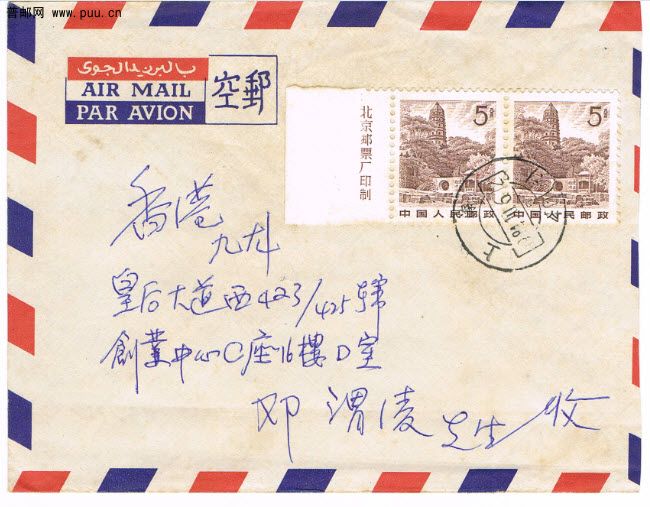 普邮网 www.puu.cn
بالبريد الجوى
AIR MAIL
PAR AVION
空郵
北京邮票厂印制
5分 5分
中国人民邮政 中国人民邮政
香港
九龙
皇后大道西423/425號
創業中心C座16樓D室
邓渭凌先生 收